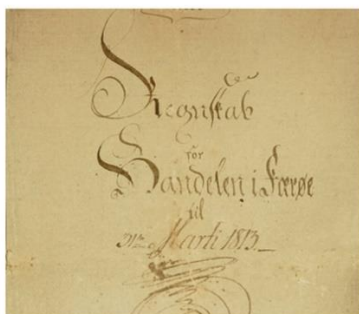 Regnskab
for
Handelen i Færøe
til
31te Marti 1813.